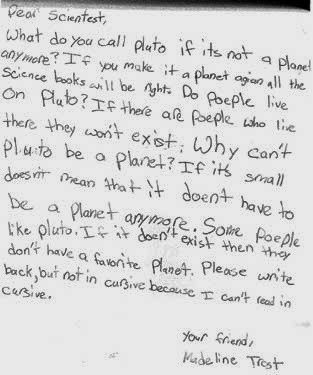 Dear Scientest,
What do you call pluto if its not a planet
anymore? If you make it a planet agian all the
Science books will be right. Do poeple live
on Pluto? If there are poeple who live
there they won't exist. Why can't
Pluto be a planet? If it's small
doesn't mean that it doen't have to
be a planet anymore. Some poeple
like pluto. If it doen't exist then they
don't have a favorite planet. Please write
back, but not in cursive because I can't read in
cursive.
Your friend,
Madeline Trost